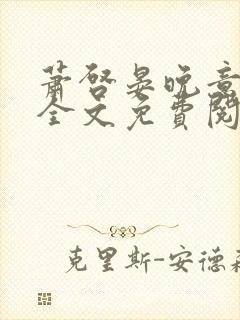 萧启晏晚意
全文免费阅
克里斯-安德森